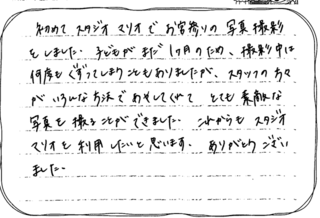 初めて スタジオ マリオ で お宮参りの 写真 撮影
を しました. 子どもが まだ 1ヶ月の ため、 撮影中は
何度も ぐずって しまうことも ありましたが、 スタッフの 方々
が いろんな 方法で あやしてくれて とても 素敵な
写真を 撮ることが できました. これからも スタジオ
マリオを 利用したいと 思います. ありがとう ござい
ました.